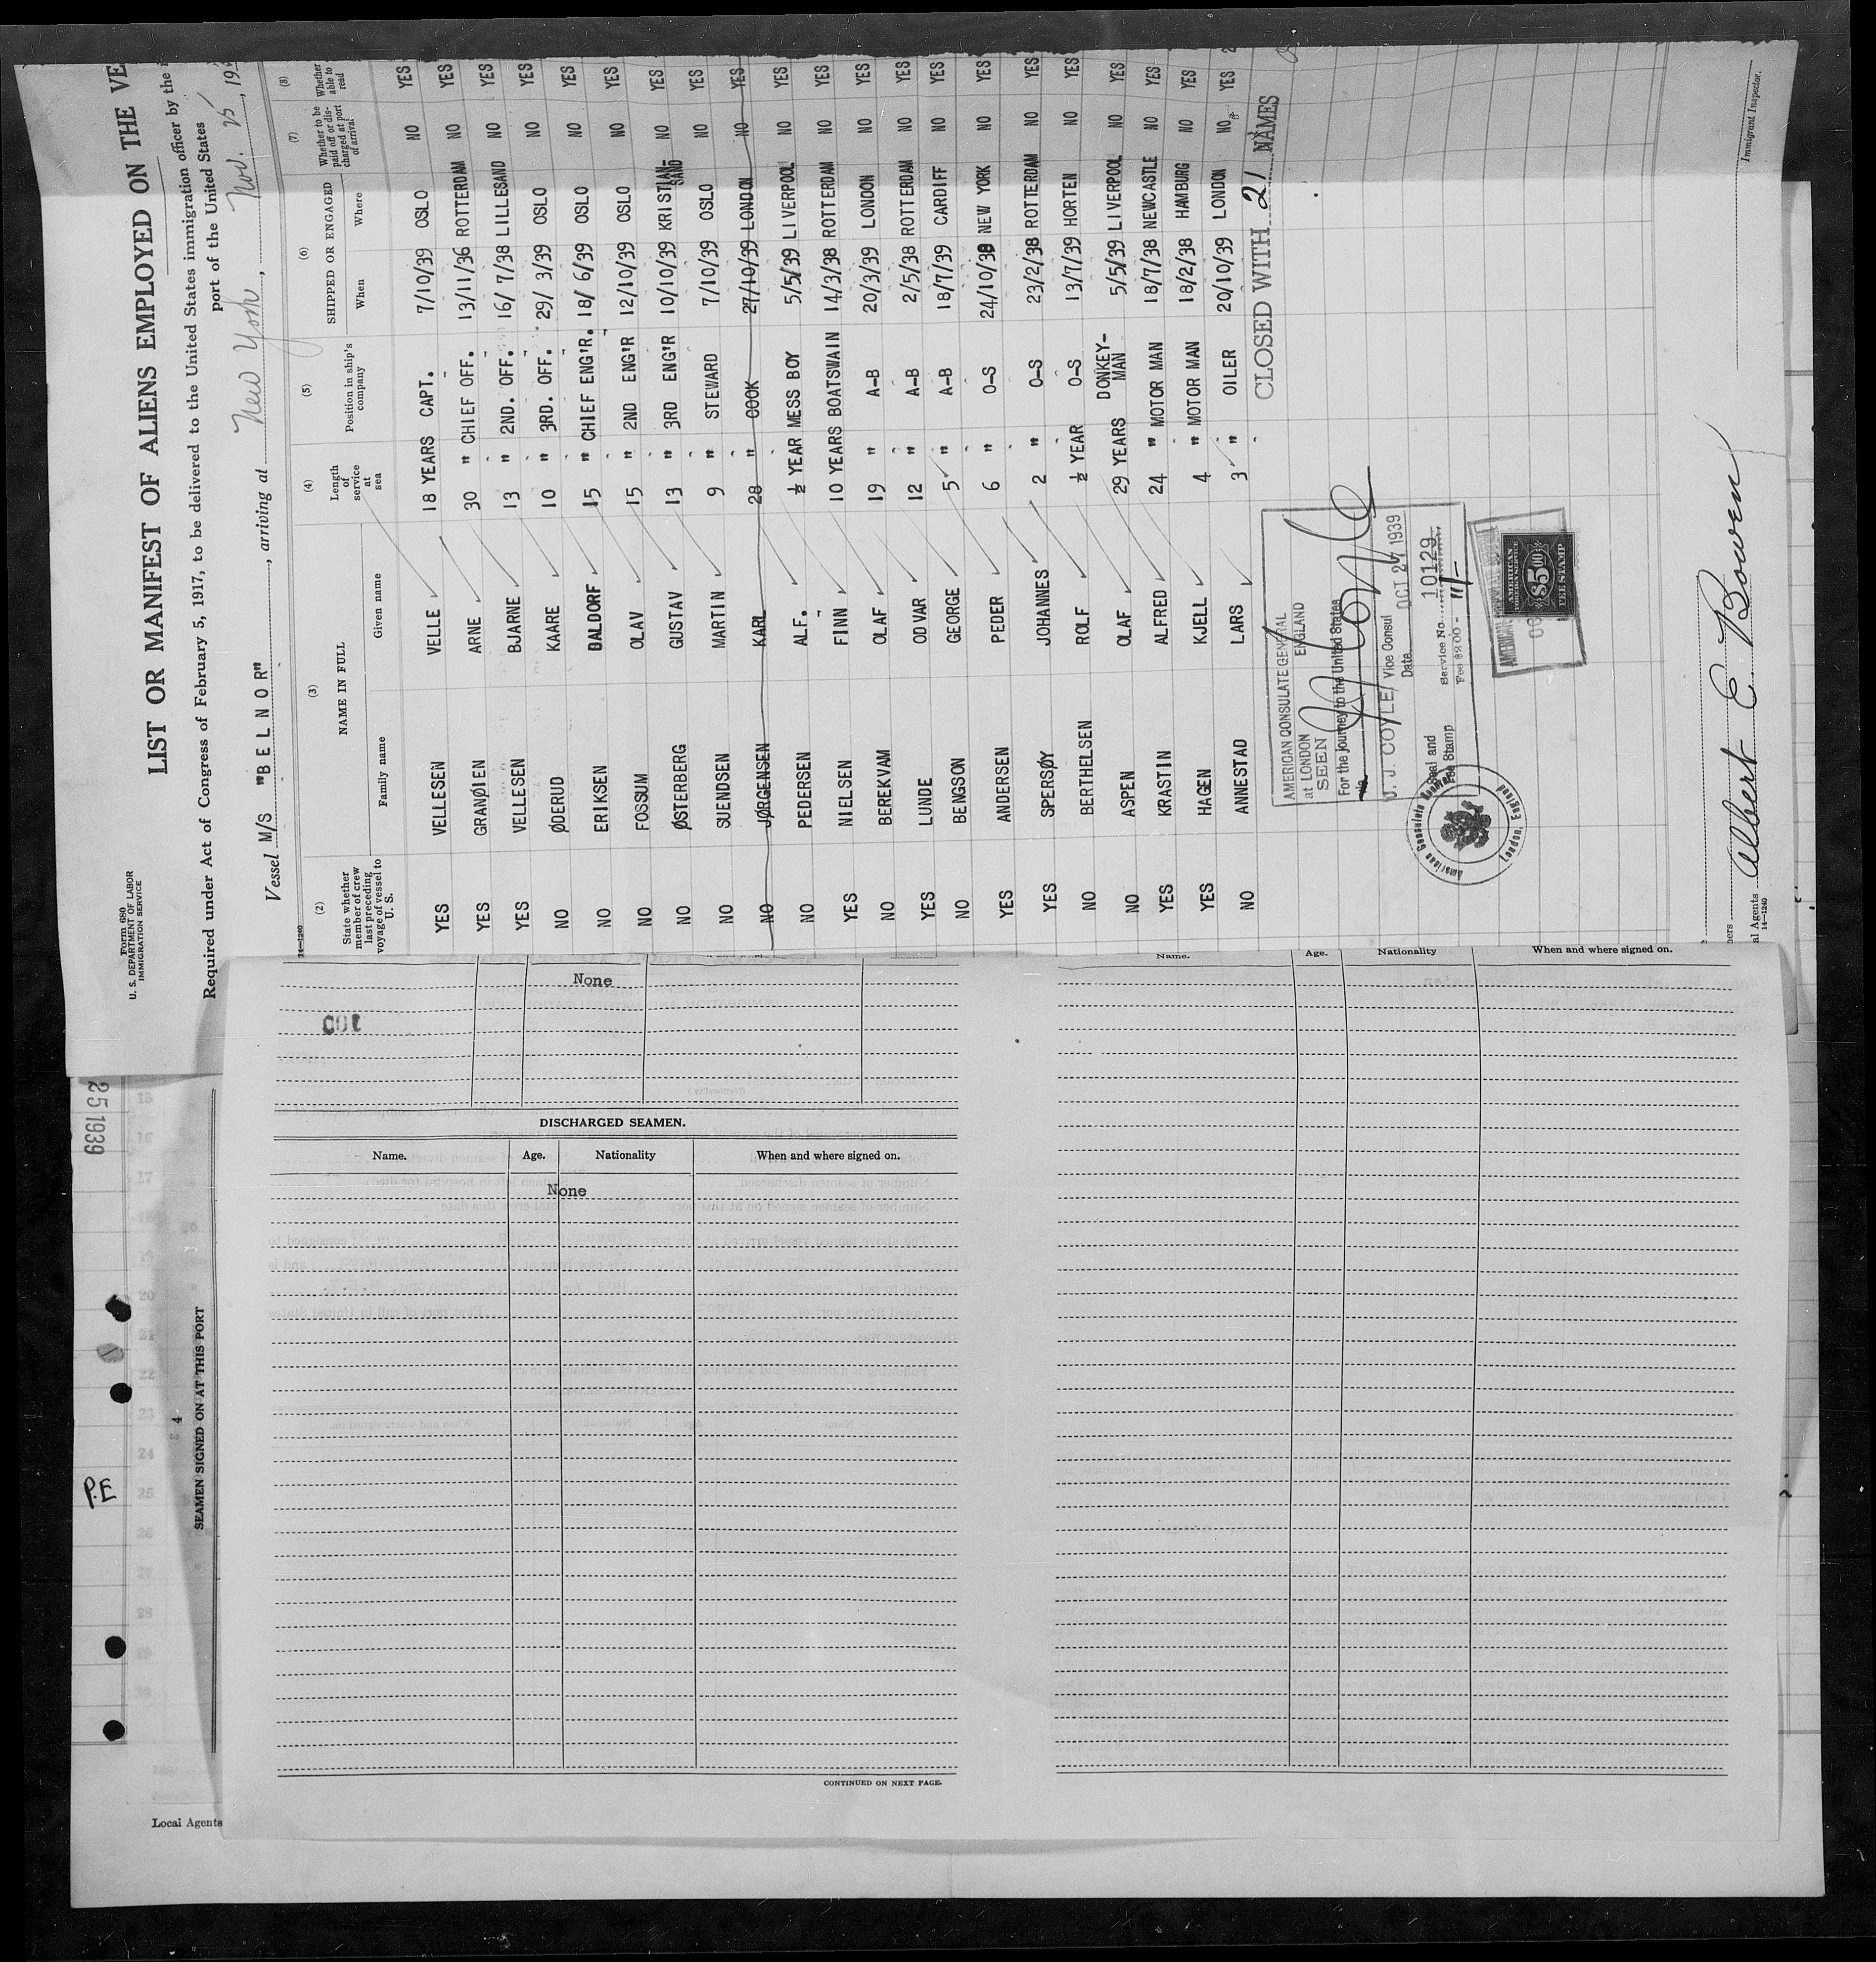 Form 680
U. S. DEPARTMENT OF LABOR
IMMIGRATION SERVICE
LIST OR MANIFEST OF ALIENS EMPLOYED ON THE VE
Required under Act of Congress of February 5, 1917, to be delivered to the United States immigration officer by the
port of the United States
Vessel M/S "B E L N O R", arriving at New York, Nov. 25, 19
14—1240
(2) (3) (4) (5) (6) (7) (8)
State whether member of crew last preceding voyage of vessel to U. S.
NAME IN FULL
Family name Given name
Length of service at sea
Position in ship's company
SHIPPED OR ENGAGED
When Where
Whether to be paid off or discharged at port of arrival
Whether able to read
YES VELLESEN VELLE 18 YEARS CAPT. 7/10/39 OSLO NO YES
YES GRANØIEN ARNE 30 " CHIEF OFF. 13/11/36 ROTTERDAM NO YES
YES VELLESEN BJARNE 13 " 2ND. OFF. 16/ 7/38 LILLESAND NO YES
NO ØDERUD KAARE 10 " 3RD. OFF. 29/ 3/39 OSLO NO YES
NO ERIKSEN DALDORF 15 " CHIEF ENG'R. 18/ 6/39 OSLO NO YES
NO FOSSUM OLAV 15 " 2ND ENG'R 12/10/39 OSLO NO YES
NO ØSTERBERG GUSTAV 13 " 3RD ENG'R 10/10/39 KRISTIAN-SAND NO YES
NO SUENDSEN MARTIN 9 " STEWARD 7/10/39 OSLO NO YES
NO JØRGENSEN KARL 28 " COOK 27/10/39 LONDON NO YES
NO PEDERSEN ALF. ½ YEAR MESS BOY 5/5/39 LIVERPOOL NO YES
YES NIELSEN FINN 10 YEARS BOATSWAIN 14/3/38 ROTTERDAM NO YES
NO BEREKVAM OLAF 19 " A-B 20/3/39 LONDON NO YES
YES LUNDE ODVAR 12 " A-B 2/5/38 ROTTERDAM NO YES
NO BENGSON GEORGE 5 " A-B 18/7/39 CARDIFF NO YES
YES ANDERSEN PEDER 6 " O-S 24/10/38 NEW YORK NO YES
YES SPERSØY JOHANNES 2 " O-S 23/2/38 ROTTERDAM NO YES
NO BERTHELSEN ROLF ½ YEAR O-S 13/7/39 HORTEN NO YES
NO ASPEN OLAF 29 YEARS DONKEY-MAN 5/5/39 LIVERPOOL NO YES
YES KRASTIN ALFRED 24 " MOTOR MAN 18/7/38 NEWCASTLE NO YES
YES HAGEN KJELL 4 " MOTOR MAN 18/2/38 HAMBURG NO YES
NO ANNESTAD LARS 3 " OILER 20/10/39 LONDON NO YES
CLOSED WITH 21 NAMES
AMERICAN CONSULATE GENERAL
at LONDON ENGLAND
SEEN
For the journey to the United States
J. J. COYLE, Vice Consul
Date OCT 27 1939
Seal and Fee Stamp
Service No. 10129
Fee $2.00
American Consulate General
London, England
AMERICAN
$5.00
FEE STAMP
Immigrant Inspector.
al Agents Albert E. Bowen
14—1240
Name. Age. Nationality When and where signed on.
None
DISCHARGED SEAMEN.
Name. Age. Nationality When and where signed on.
None
CONTINUED ON NEXT PAGE.
25 1939
SEAMEN SIGNED ON AT THIS PORT
P.E
15
16
17
18
19
20
21
22
23
24
25
26
27
28
29
30
Local Agents